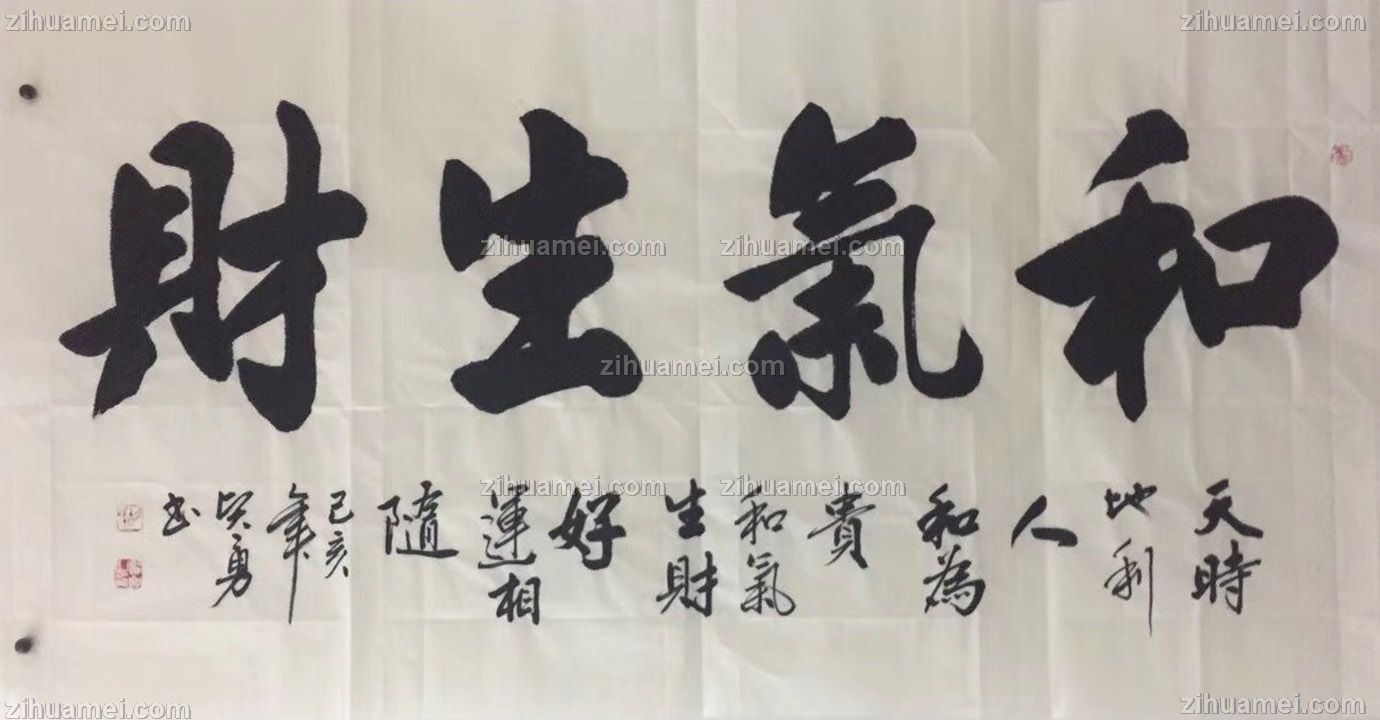 和氣生財
天時
地利
人
和為
貴
和氣
生財
好
運相
隨
己亥
年
賢勇
書
zihuamei.com
zihuamei.com
zihuamei.com
zihuamei.com
zihuamei.com
zihuamei.com
zihuamei.com
zihuamei.com
zihuamei.com